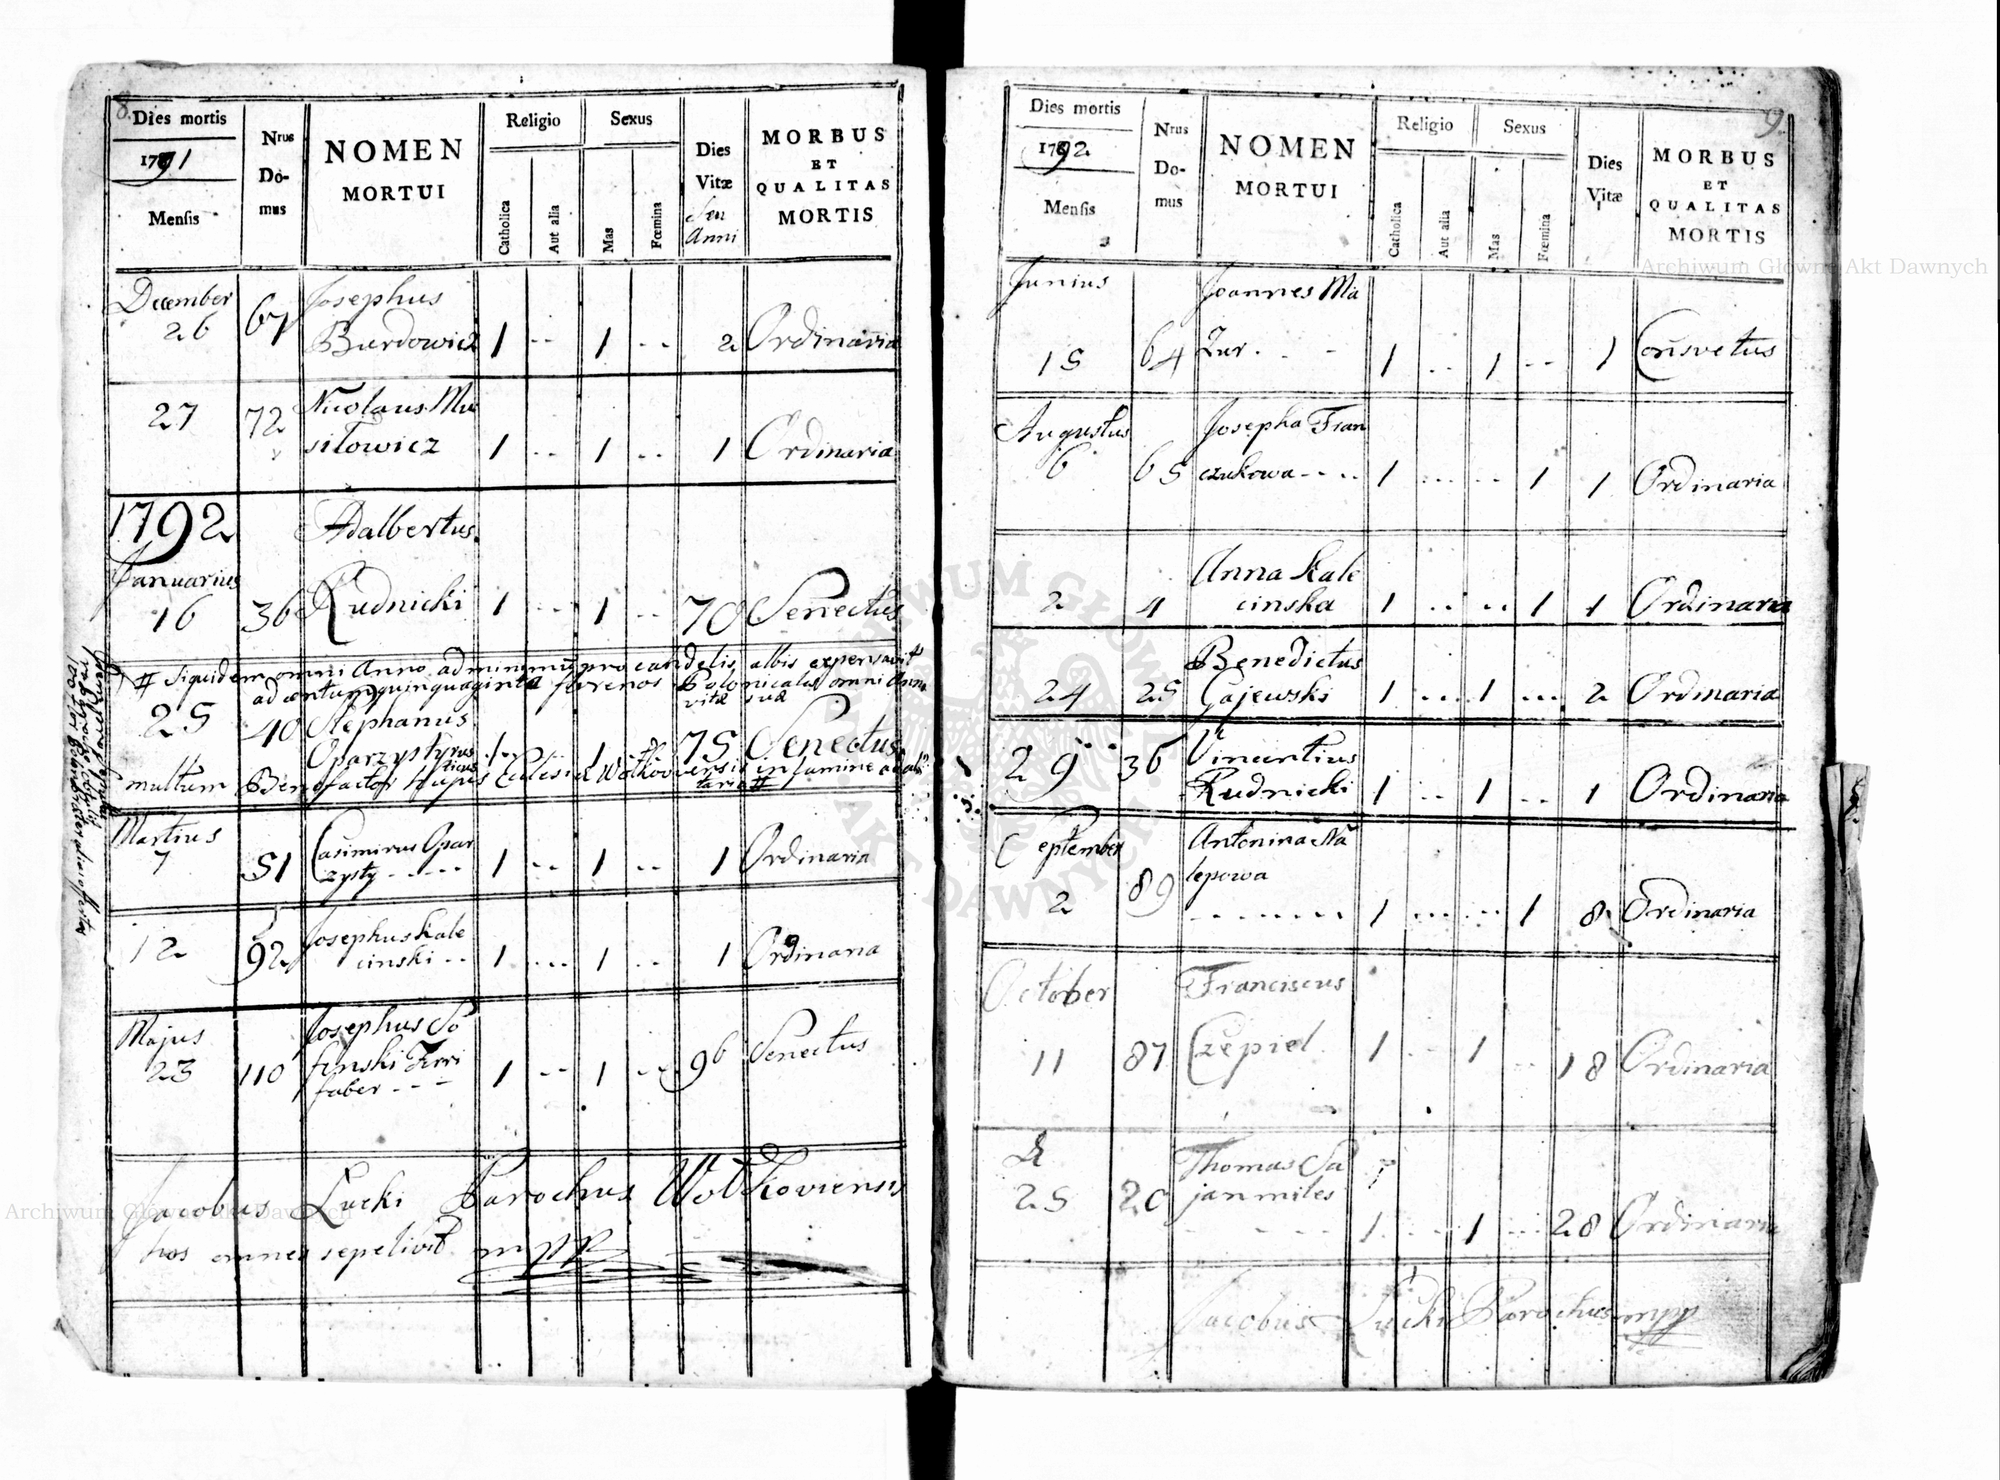 8.
Dies mortis
1791
Mensis
Nrus Domus
NOMEN
MORTUI
Religio
Catholica
Aut alia
Sexus
Mas
Fœmina
Dies
Vitæ
seu
Anni
MORBUS
ET
QUALITAS
MORTIS
December Josephus
26 67 Burdowicz 1 -- 1 -- 2 Ordinaria
27 72 Nicolaus Mu
silowicz 1 -- 1 -- 1 Ordinaria
1792 Adalbertus
Januarius
16 36 Rudnicki 1 -- 1 -- 70 Senectus
# siquidem omni Anno ad minimū pro candelis albis expensavit
ad centum quinquaginta florenos Polonicales omni Anno
vitæ suæ
25 40 Stephanus
Oparzysty 1 1 75 Senectus
multum Benefactor hujus Ecclesiæ Wolkoviensis in lumine ad al
taria #
Martius
7 51 Casimirus Opar
zysty ----- 1 -- 1 -- 1 Ordinaria
12 92 Josephus Kale
cinski -- 1 --- 1 -- 1 Ordinaria
Majus Josephus So
23 110 finski Ferri
faber --- 1 -- 1 -- 96 Senectus
Jacobus Lucki Parochus Wolkoviensis
hos omnes sepelivit mpp
9.
Dies mortis
1792
Mensis
Nrus
Domus
NOMEN
MORTUI
Religio
Catholica
Aut alia
Sexus
Mas
Fœmina
Dies
Vitæ
MORBUS
ET
QUALITAS
MORTIS
Junius Joannes Ma
15 64 zur . - - 1 -- 1 -- 1 Consvetus
Augustus Josepha Fran
6 65 czukowa ---- 1 --- -- 1 1 Ordinaria
2 4 Anna Kale
cinska 1 -- -- 1 1 Ordinaria
24 25 Benedictus
Gajewski 1 --- 1 --- 2 Ordinaria
29 36 Vincentius
Rudnicki 1 -- 1 -- 1 Ordinaria
September Antonina Na
2 89 lepowa
------- 1 --- --- 1 8 Ordinaria
October Franciscus
11 87 Czepiel 1 -- 1 -- 18 Ordinaria
25 20 Thomas Sa
jan miles
1 -- 1 --- 28 Ordinaria
Jacobus Lucki Parochus mpp
Archiwum Główne Akt Dawnych
Archiwum Główne Akt Dawnych
ARCHIWUM GŁÓWNE AKT DAWNYCH